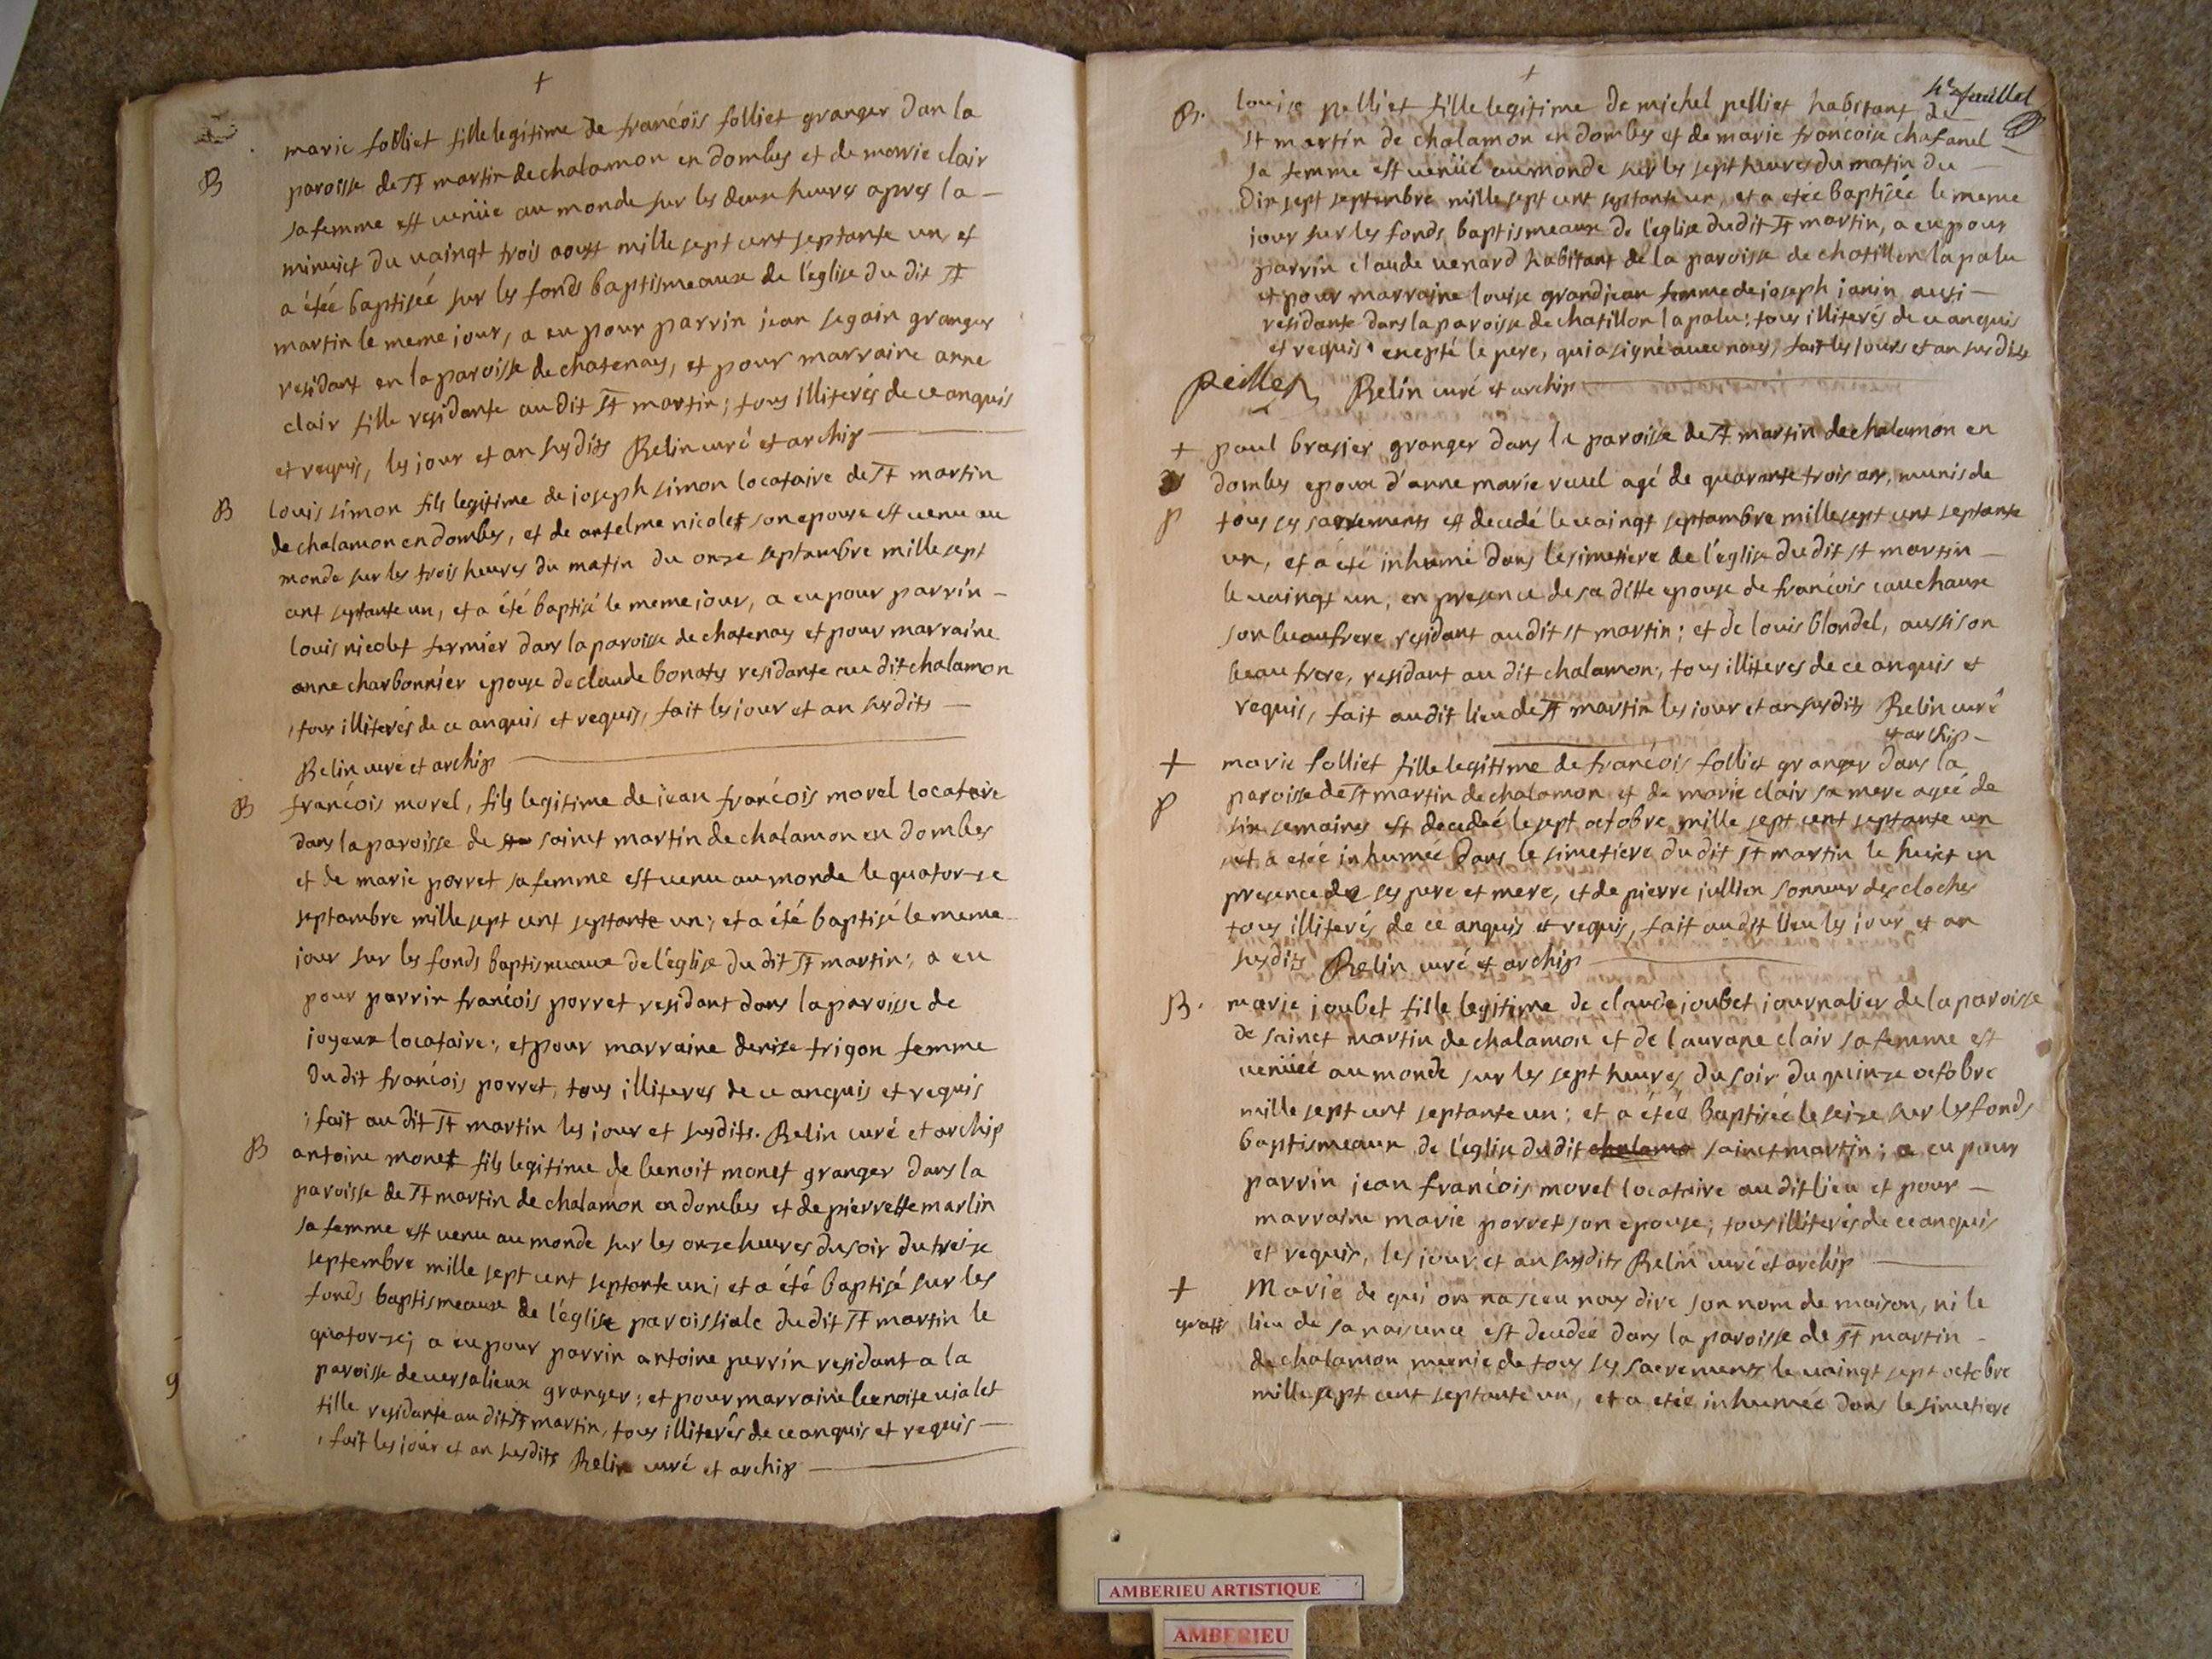 +
marie folliet fille legitime de francóis folliet granger dan la
B
paroisse de St martin de chalamon en dombes et de marie clair
sa femme est venüe au monde sur les deux heures apres la —
minuict du vaingt trois aoust mille sept cent septante un, et
a étée baptiseé sur les fonds baptismeaux de l'eglise du dit St
martin le meme jour, a eu pour parrin jean segain granger
residant en la paroisse de chatenay, et pour marraine anne
clair fille residante au dit St martin; tous illiterés de ce anquis
et requis, les jour et an susdits Relin curé et archip —
B louis simon fils legitime de joseph simon locataire de St martin
de chalamon en dombes, et de antelme nicolet son epouse est venu au
monde sur les trois heures du matin du onze septambre mille sept
cent septante un, et a été baptisé le meme jour, a eu pour parrin —
louis nicolet fermiér dans la paroisse de chatenay et pour marraine
anne charbonniér epouse de claude bonaty residante au dit chalamon
, tous illiterés de ce anquis et requis, fait les jour et an susdits —
Relin curé et archip —
B francóis morel, fils legitime de jean francóis morel locatere
dans la paroisse de sainct martin de chalamon en dombes
et de marie porret sa femme est venu au monde le quatorze
septambre mille sept cent septante un; et a été baptisé le meme
jour sur les fonds baptismeaux de l'église du dit St martin; a eu
pour parrin francóis porret residant dans la paroisse de
joyeux locataire; et pour marraine denize trigon femme
du dit francóis porret, tous illiteres de ce anquis et requis
; fait au dit St martin les jour et susdits. Relin curé et archip
B antoine monet fils legitime de benoit monet granger dans la
paroisse de St martin de chalamon en dombes et de pierrette marlin
sa femme est venu au monde sur les onze heures du soir du treize
septembre mille sept cent septante un; et a été baptisé sur les
fonds baptismeaux de l'église paroissiale du dit St martin le
quatorze; a eu pour parrin antoine perrin residant a la
paroisse de versalieux granger; et pour marraine benoite vialet
fille residante au dit St martin, tous illiterés de ce anquis et requis —
, fait les jour et an susdits Relin curé et archip —
9
+
4e feuillet
B. louise pelliet fille legitime de michel pelliet habitant de —
st martin de chalamon en dombes et de marie francoise chafanel —
sa femme est venüe au monde sur les sept heures du matin du —
dix sept septembre mille sept cent septante un, et a etée baptiséé le meme
jour sur les fonds baptismeaux de l'église du dit St martin, a eu pour
parrin claude venard habitant de la paroisse de chatillon la palu
et pour marraine louise grandjean femme de joseph janin aussi —
residante dans la paroisse de chatillon la palu; tous illiterés de ce anquis
et requis exepté le pere, qui a signé avec nous, fait les jours et an susdits
Peillet Relin curé et archip —
+ paul brasier granger dans la paroisse de St martin de chalamon en
dombes epoux d'anne marie revel agé de quarante trois an, munis de
p tous ses sacrements est decedé le vaingt septambre mille sept cent septante
un, et a été inhumé dans le simetiere de l'église du dit st martin —
le vaingt un, en presence de sa ditte epouse de francóis cauchaux
son beaufrere residant au dit st martin; et de louis blondel, aussi son
beau frere, residant au dit chalamon; tous illiteres de ce anquis et
requis, fait au dit lieu de St martin les jour et an susdits Relin curé
et archip —
+ marie folliet fille legitime de francóis folliet granger dans la
p paroisse de St martin de chalamon et de marie clair sa mere ageé de
six semaines est decedeé le sept octobre mille sept cent septante un
et a etée inhumée dans le simetiere du dit St martin le huict en
presence de ses pere et mere, et de pierre jullien sonneur des cloches
tous illiterés de ce anquis et requis, fait au dit lieu les jour et an
susdits Relin curé et archip —
B. marie joubet fille legitime de claude joubet journalier de la paroisse
de sainct martin de chalamon et de laurane clair sa femme est
venüeé au monde sur les sept heures du soir du quinze octobre
mille sept cent septante un; et a étéé baptisée le seize sur les fonds
baptismeaux de l'église du dit chalamo sainct martin; a eu pour
parrin jean francóis morel locataire au dit lieu et pour —
marraine marie porret son epouse; tous illiterés de ce anquis
et requis, les jour et an susdits Relin curé et archip —
+ Marie de qui on na sceu nous dire son nom de maison, ni le
gratis lieu de sa naisence est decedeé dans la paroisse de St martin —
de chalamon munie de tous ses sacrements le vaingt sept octobre
mille sept cent septante un, et a etée inhumée dans le simetiere
AMBERIEU ARTISTIQUE
AMBERIEU